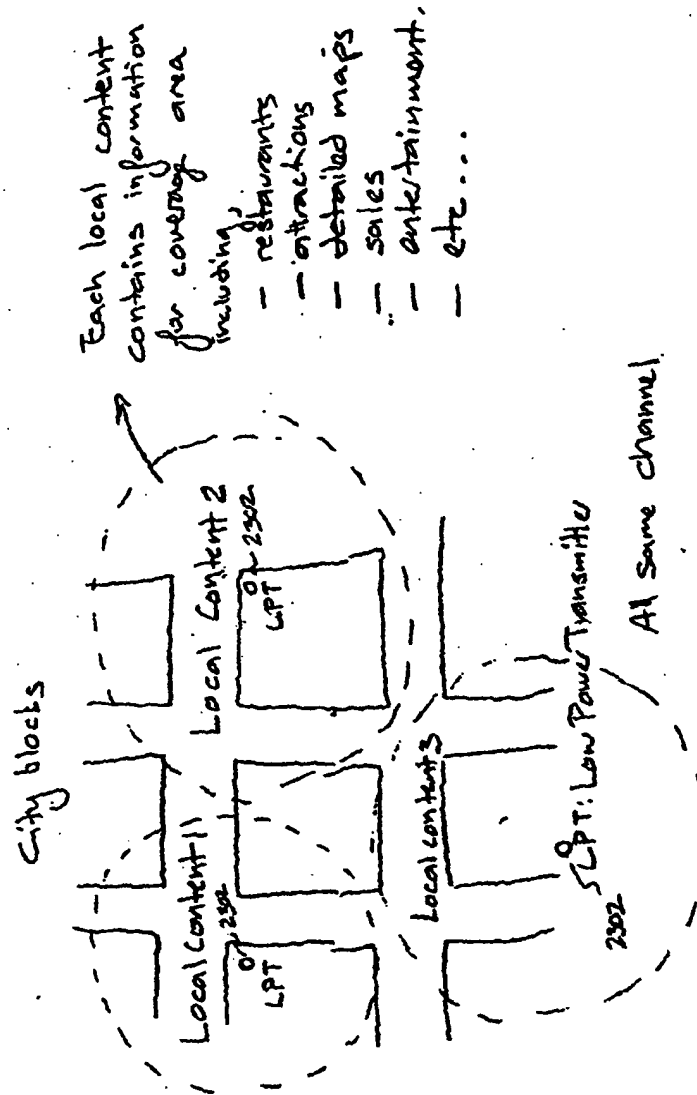 City blocks
Local Content 11
2302
LPT
Local Content 2
2302
LPT
Local content 3
2302
LPT: Low Power Transmitter
All same channel
Each local content
contains information
for coverage area
including,
- restaurants
- attractions
- detailed maps
- sales
- entertainment.
- etc...